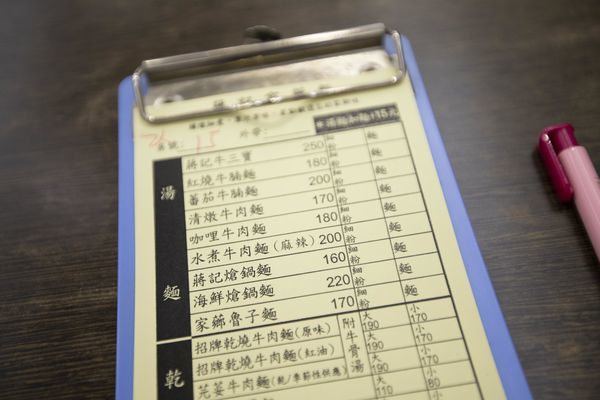 15
外帶:
湯麵加麵+15元
湯麵
蔣記牛三寶 250 細粉 麵
紅燒牛腩麵 180 細粉 麵
蕃茄牛腩麵 200 細粉 麵
清燉牛肉麵 170 細粉 麵
咖哩牛肉麵 180 細粉 麵
水煮牛肉麵(麻辣) 200 細粉 麵
蔣記熗鍋麵 160 細粉 麵
海鮮熗鍋麵 220 細粉 麵
家鄉魯子麵 170 細粉 麵
乾
附牛骨湯
招牌乾燒牛肉麵(原味) 大190 小170
招牌乾燒牛肉麵(紅油) 大190 小170
芫荽牛肉麵(乾/季節性供應) 大190 小170
大110 小80